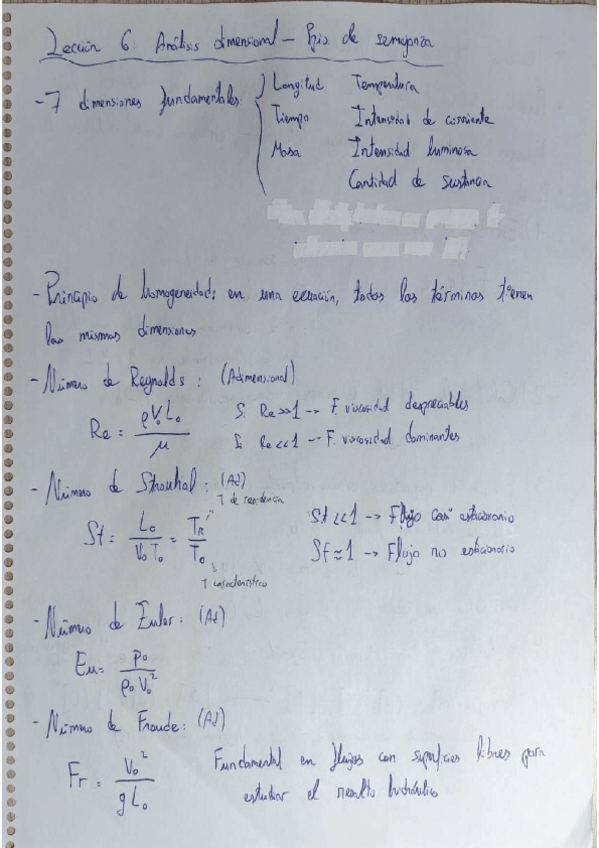 Lección 6: Análisis dimensional – Ppio. de semejanza
- 7 dimensiones fundamentales: Longitud Temperatura
Tiempo Intensidad de corriente
Masa Intensidad luminosa
Cantidad de sustancia
- Principio de homogeneidad: en una ecuación, todos los términos tienen
las mismas dimensiones
- Número de Reynolds: (Adimensional)
Re = ρV₀L₀ / μ
Si Re >> 1 -> F. viscosidad despreciables
Si Re << 1 -> F. viscosidad dominantes
- Número de Strouhal: (Ad)
T de residencia
St = L₀ / V₀T₀ = T_R / T₀
T característico
St << 1 -> Flujo casi estacionario
St ≈ 1 -> Flujo no estacionario
- Número de Euler: (Ad)
Eu = p₀ / ρ₀V₀²
- Número de Froude: (Ad)
Fr = V₀² / gL₀
Fundamental en flujos con superficies libres para
estudiar el resalto hidráulico